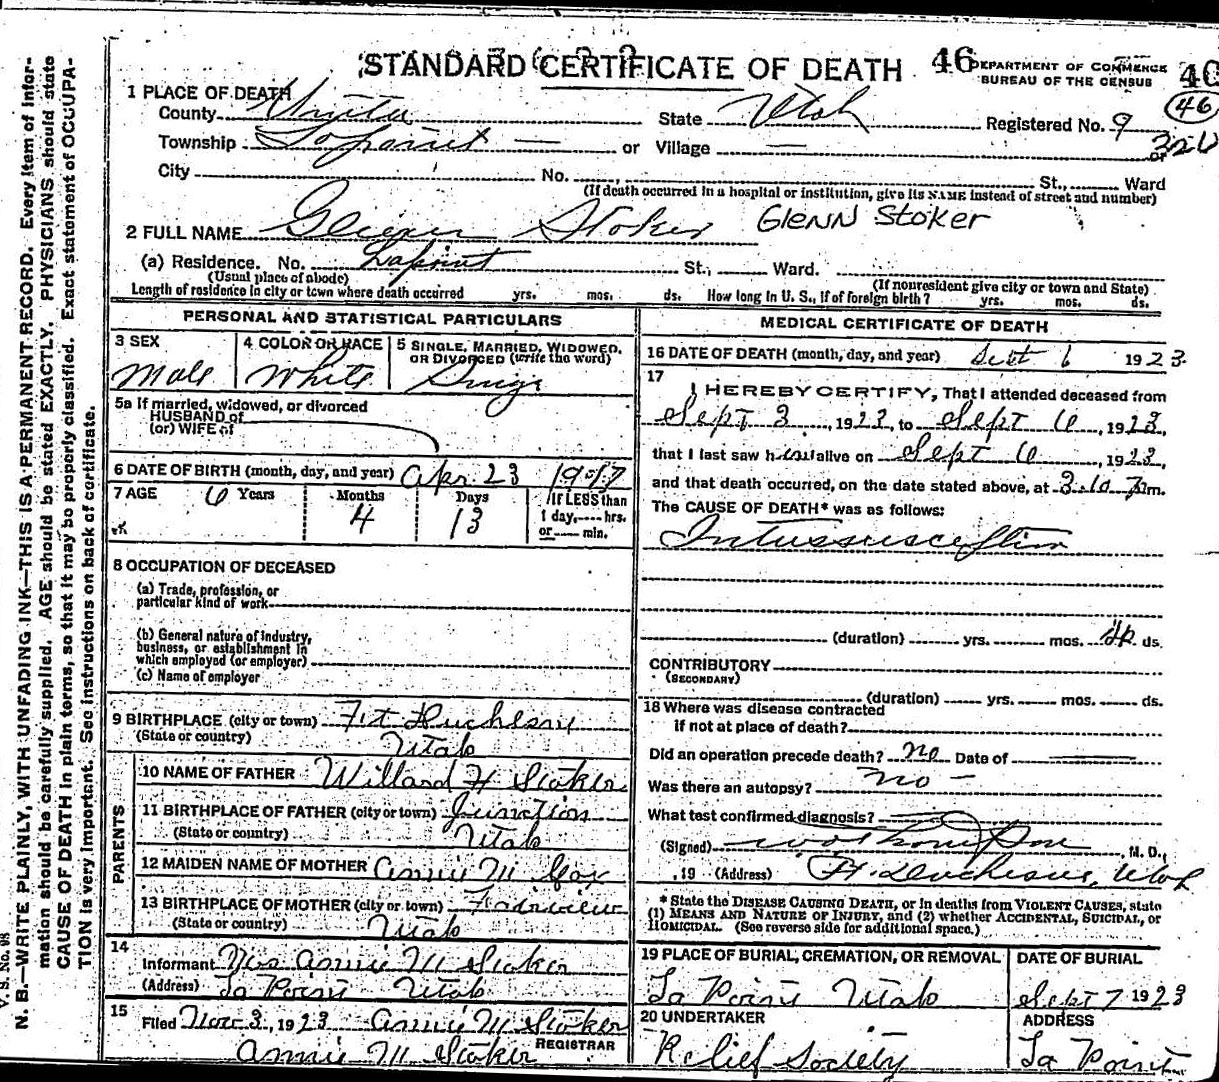 STANDARD CERTIFICATE OF DEATH 46 DEPARTMENT OF COMMERCE
BUREAU OF THE CENSUS
46
1 PLACE OF DEATH
County Uinta State Utah Registered No. 9
Township Lapoint — or Village — 326
or
City No. , St., Ward
(If death occurred in a hospital or institution, give its NAME instead of street and number)
2 FULL NAME Stoker GLENN Stoker
(a) Residence. No. Lapoint St., Ward.
(Usual place of abode) (If nonresident give city or town and State)
Length of residence in city or town where death occurred yrs. mos. ds. How long in U. S., if of foreign birth? yrs. mos. ds.
PERSONAL AND STATISTICAL PARTICULARS
3 SEX 4 COLOR OR RACE 5 SINGLE, MARRIED, WIDOWED, OR DIVORCED (write the word)
Male White Single
5a If married, widowed, or divorced
HUSBAND of
(or) WIFE of
6 DATE OF BIRTH (month, day, and year) Apr. 23 1917
7 AGE 6 Years Months 4 Days 13 If LESS than
1 day, hrs.
or min.
8 OCCUPATION OF DECEASED
(a) Trade, profession, or
particular kind of work
(b) General nature of industry,
business, or establishment in
which employed (or employer)
(c) Name of employer
9 BIRTHPLACE (city or town) Ft Duchesne
(State or country) Utah
PARENTS
10 NAME OF FATHER Willard H Stoker
11 BIRTHPLACE OF FATHER (city or town) Junction
(State or country) Utah
12 MAIDEN NAME OF MOTHER Annie M Cox
13 BIRTHPLACE OF MOTHER (city or town) Fairview
(State or country) Utah
14
Informant Mrs Annie M Stoker
(Address) La Point Utah
15
Filed Nov 3, 1923 Annie M Stoker
Annie M Stoker REGISTRAR
MEDICAL CERTIFICATE OF DEATH
16 DATE OF DEATH (month, day, and year) Sept 6 1923
17
I HEREBY CERTIFY, That I attended deceased from
Sept 3, 1923, to Sept 6, 1923,
that I last saw him alive on Sept 6, 1923,
and that death occurred, on the date stated above, at 3.10 m.
The CAUSE OF DEATH* was as follows:
Intussusception
(duration) yrs. mos. 4 ds.
CONTRIBUTORY
(SECONDARY)
(duration) yrs. mos. ds.
18 Where was disease contracted
if not at place of death?
Did an operation precede death? no Date of
Was there an autopsy? no –
What test confirmed diagnosis?
(Signed) Thompson, M. D.,
, 19 (Address) Ft. Duchesne, Utah
* State the DISEASE CAUSING DEATH, or in deaths from VIOLENT CAUSES, state
(1) MEANS AND NATURE OF INJURY, and (2) whether ACCIDENTAL, SUICIDAL, or
HOMICIDAL. (See reverse side for additional space.)
19 PLACE OF BURIAL, CREMATION, OR REMOVAL DATE OF BURIAL
La Point Utah Sept 7 1923
20 UNDERTAKER ADDRESS
Relief Society La Point
V. S. No. 98
N. B.—WRITE PLAINLY, WITH UNFADING INK—THIS IS A PERMANENT RECORD. Every item of infor-
mation should be carefully supplied. AGE should be stated EXACTLY. PHYSICIANS should state
CAUSE OF DEATH in plain terms, so that it may be properly classified. Exact statement of OCCUPA-
TION is very important. See instructions on back of certificate.